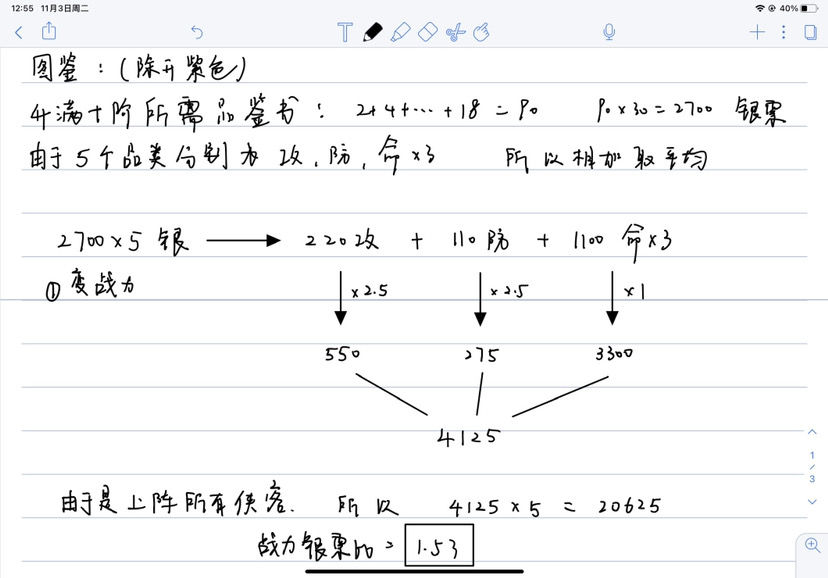 12:55 11月3日周二
40%
T
图鉴：(除开紫色)
升满十阶所需品鉴书： 2+4+…+18=90 90×30=2700 银票
由于5个品类分别为 攻，防，命×3 所以相加取平均
2700×5 银 → 220攻 + 110防 + 1100 命×3
① 变战力 ×2.5 ×2.5 ×1
550 275 3300
4125
1
/
3
由于是上阵所有侠客. 所以 4125×5 = 20625
战力银票比 = 1.53